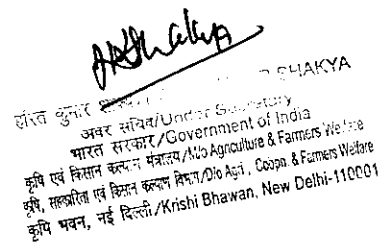 HKShakya
हरित कुमार SHAKYA
अवर सचिव/Under Secretary
भारत सरकार/Government of India
कृषि एवं किसान कल्याण मंत्रालय/M/o Agriculture & Farmers Welfare
कृषि, सहकारिता एवं किसान कल्याण विभाग/D/o Agri., Coopn. & Farmers Welfare
कृषि भवन, नई दिल्ली/Krishi Bhawan, New Delhi-110001